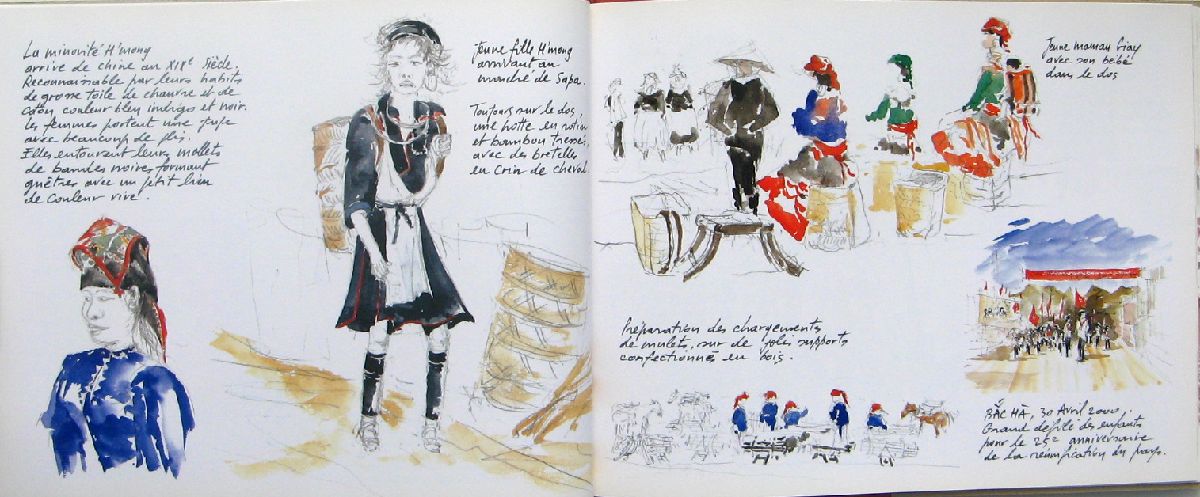 La minorité H'mong
arrive de chine au XIXe Siècle.
Reconnaissable par leurs habits
de grosse toile de chanvre et de
coton couleur bleu indigo et noir.
les femmes portent une jupe
avec beaucoup de plis.
Elles entourent leurs mollets
de bandes noires formant
guêtres avec un petit lien
de couleur vive.
Jeune fille H'mong
arrivant au
marché de Sapa.
Toujours sur le dos
une hotte en rotin
et bambou tressé,
avec des bretelles
en crin de cheval.
Jeune maman Giay
avec son bébé
dans le dos
Préparation des chargements
de mulets, sur de jolis supports
confectionnés en bois.
BẮC HÀ, 30 Avril 2000.
Grand défilé des enfants
pour le 25e anniversaire
de la réunification du pays.